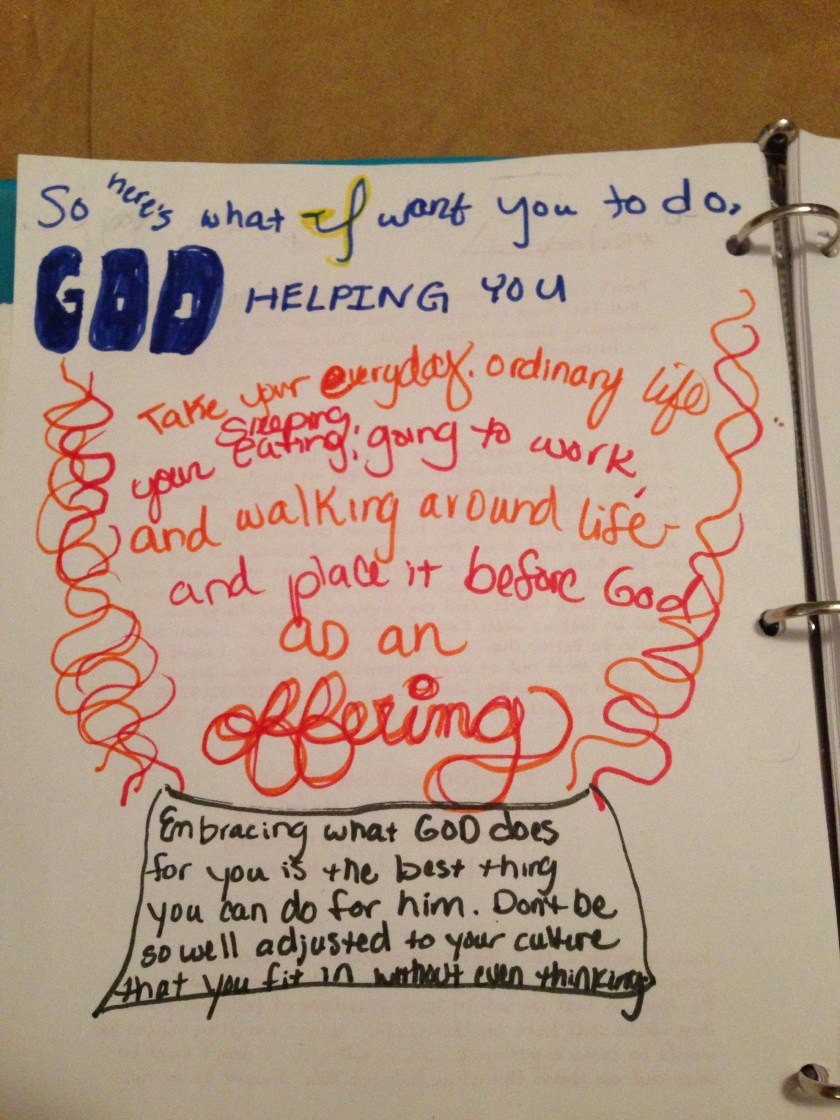 So here's what I want you to do,
GOD HELPING YOU
Take your everyday, ordinary life
your sleeping, eating, going to work,
and walking around life-
and place it before God
as an
offering
Embracing what GOD does
for you is the best thing
you can do for him. Don't be
so well adjusted to your culture
that you fit in without even thinking